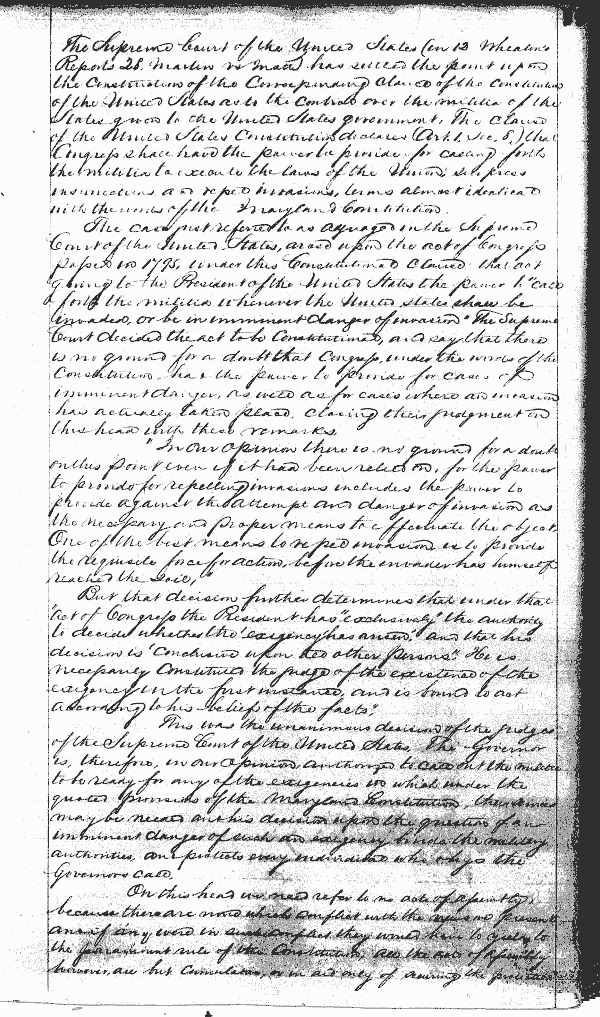 The Supreme Court of the United States (in 12 Wheaton's
Reports 28. Martin vs Mott) has settled the point upon
the Construction of the Corresponding clause of the Constitution
of the United States as to the control over the militia of the
States given to the United States government. The clause
of the United States Constitution declares (Art. 1. Sec. 8.) that
Congress shall have the power to provide for calling forth
the militia to execute the laws of the Union, suppress
insurrections, and repel invasions, terms almost identical
with the words of the Maryland Constitution.
The case just referred to as adjudged in the Supreme
Court of the United States, arose upon the act of Congress
passed in 1795, under this Constitutional clause: that act
giving to the President of the United States the power to "call
forth the militia whenever the United States shall be
invaded, or be in imminent danger of invasion" The Supreme
Court decided the act to be Constitutional, and say that there
is no ground for a doubt that Congress, under the words of the
Constitution had the power to provide for cases of
imminent danger, as well as for cases where an invasion
has actually taken place. closing their judgment on
this head with these remarks.
"In our opinion there is no ground for a doubt
on this point even if it had been relied on, for the power
to provide for repelling invasions includes the power to
provide against the attempt and danger of invasion as
the necessary and proper means to effectuate the object.
One of the best means to repel invasion is to provide
the requisite force for action, before the invader has himself
reached the soil,"
But that decision further determines that under that
act of Congress the President has "exclusively" the authority
to decide whether the "exigency has arisen" and that his
decision is "conclusive upon all other persons". He is
necessarily Constituted the judge of the existence of the
exigency in the first instance, and is bound to act
according to his "belief of the facts".
This was the unanimous decision of the judges
of the Supreme Court of the United States. The Governor
is, therefore, in our opinion authorized to call out the militia
to be ready for any of the exigencies in which under the
quoted provisions of the Maryland Constitution, their services
may be needed and his decision upon the question of an
imminent danger of such an exigency binds the military
authorities, and protects every individual who obeys the
Governors call.
On this head we need refer to no acts of Assembly,
because there are none which conflict with the views we present
and if any were in such conflict they would have to yield to
the paramount rule of the Constitution, all the acts of Assembly
however, are but Cumulative, or in aid only of securing the